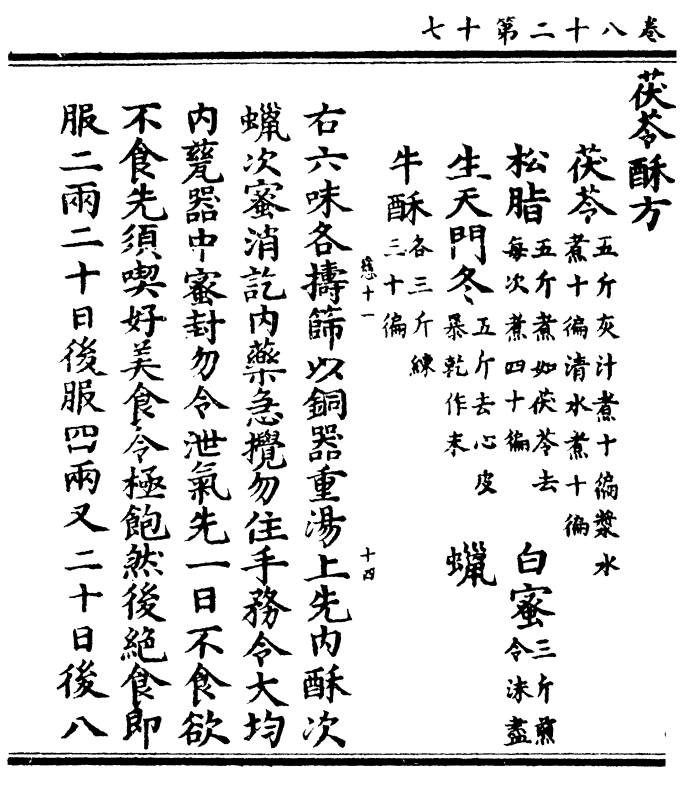 卷八十二第十七
茯苓酥方
茯苓五斤灰汁煮十徧漿水煮十徧清水煮十徧
松脂五斤煮如茯苓去每次煮四十徧 白蜜三斤煎令沫盡
生天門冬五斤去心皮暴乾作末 蠟
牛酥各三斤練三十徧
慈十一 十四
右六味各擣篩以銅器重湯上先內酥次
蠟次蜜消訖內藥急攪勿住手務令大均
內甆器中蜜封勿令泄氣先一日不食欲
不食先須喫好美食令極飽然後絕食即
服二兩二十日後服四兩又二十日後八